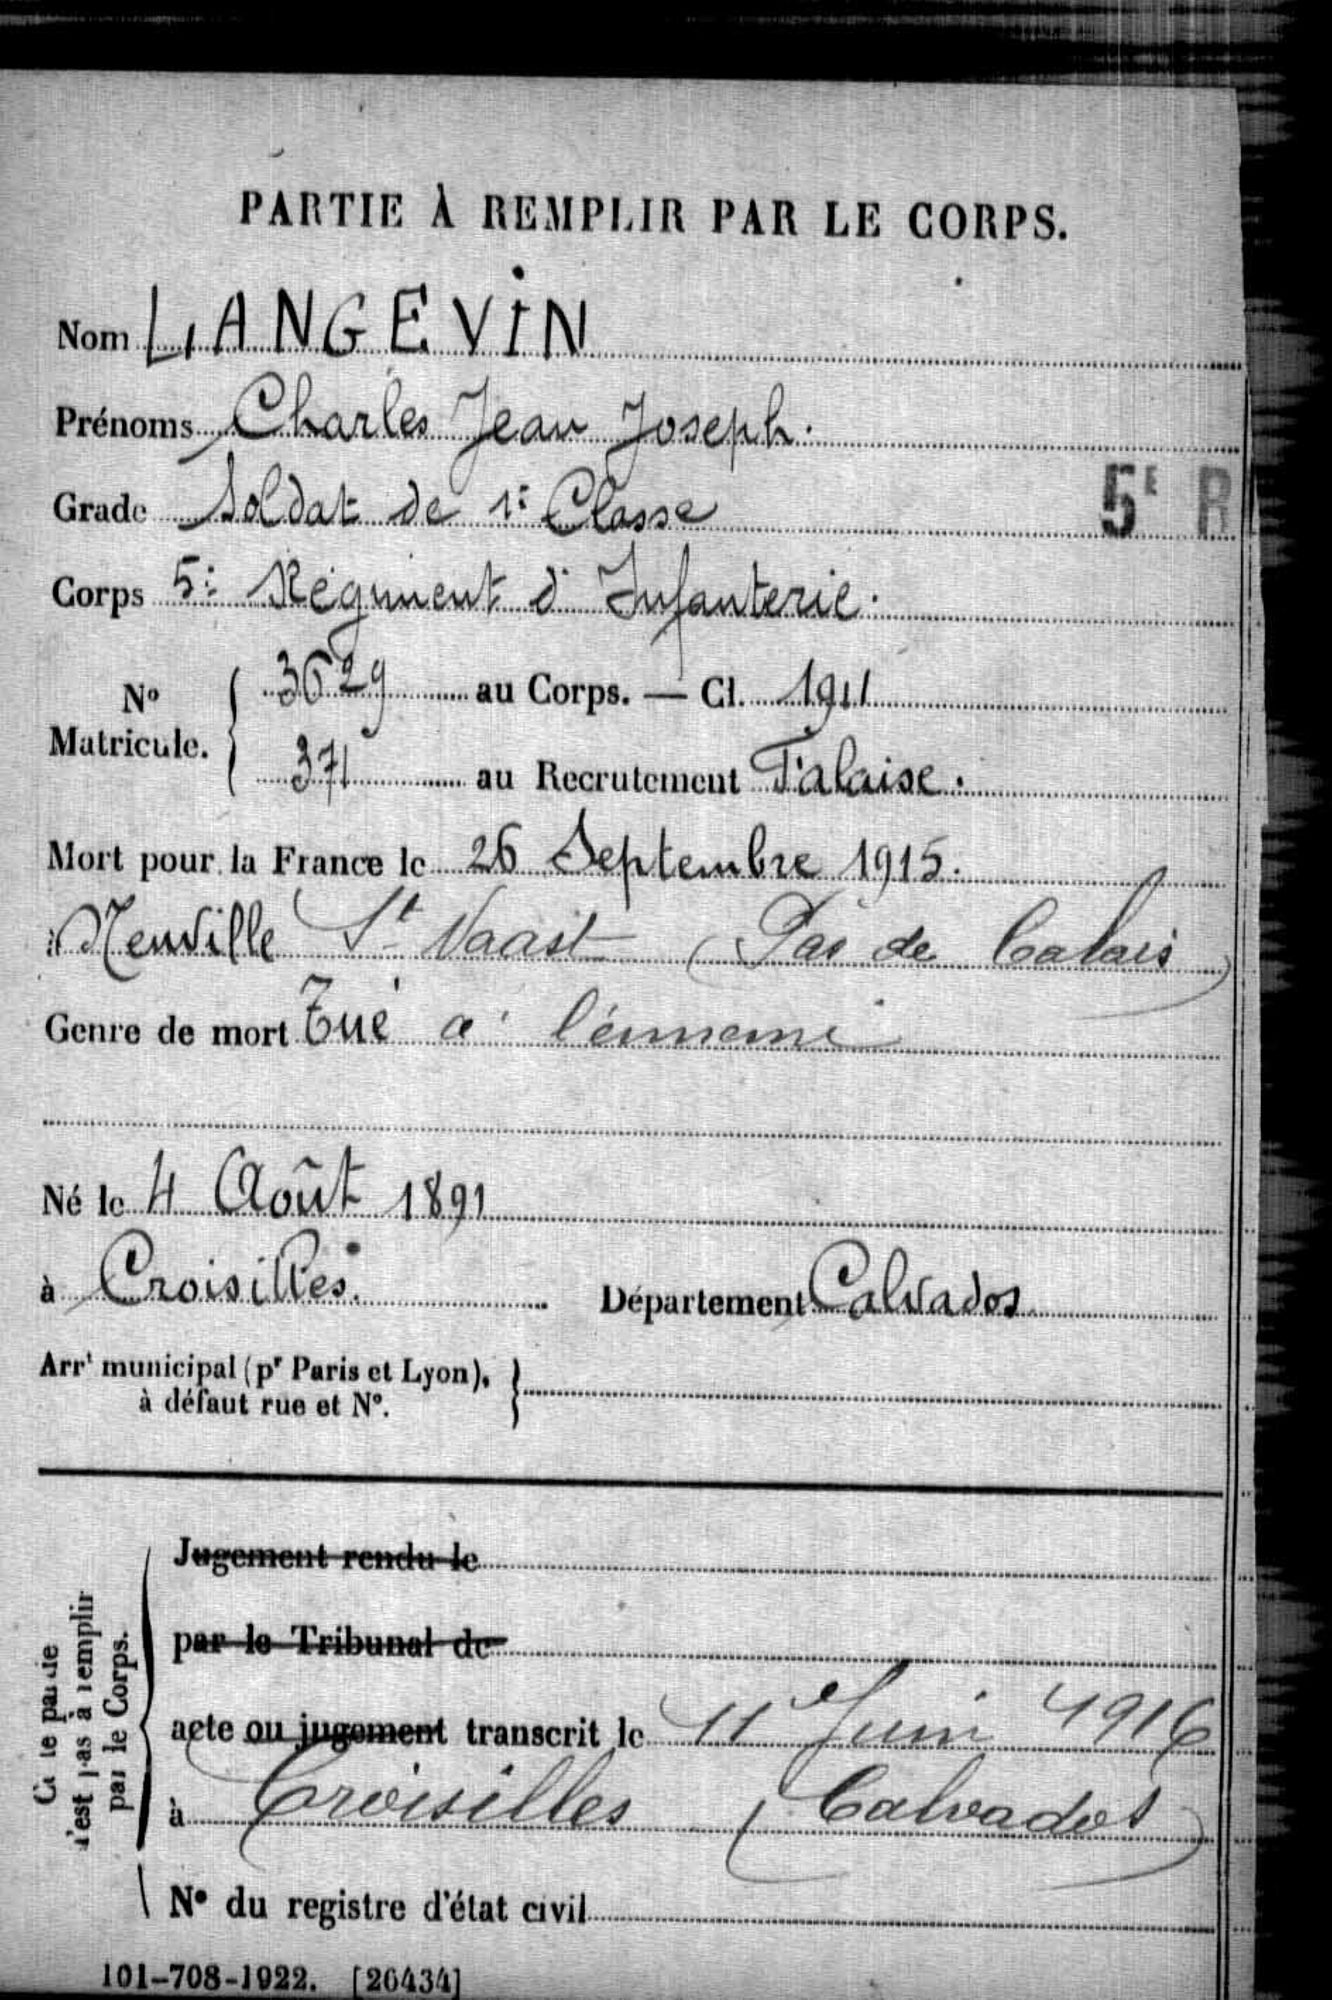 PARTIE À REMPLIR PAR LE CORPS.
Nom LANGEVIN
Prénoms Charles Jean Joseph.
Grade Soldat de 1e Classe
5E R
Corps 5e Régiment d'Infanterie.
No Matricule. 3629 au Corps. — Cl. 1911
371 au Recrutement Falaise.
Mort pour la France le 26 Septembre 1915.
à Neuville St Vaast (Pas de Calais)
Genre de mort Tué à l'ennemi
Né le 4 Août 1891
à Croisilles. Département Calvados
Arrt municipal (pr Paris et Lyon),
à défaut rue et No.
Jugement rendu le
par le Tribunal de
acte ou jugement transcrit le 11 Juin 1916
à Croisilles (Calvados)
No du registre d'état civil
Cette partie
n'est pas à remplir
par le Corps.
101-708-1922. [26434]